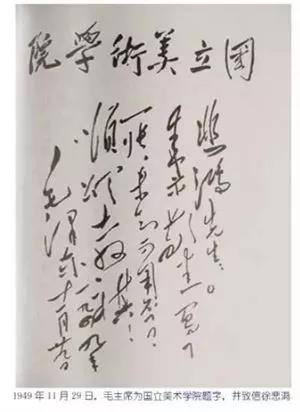 國立美術學院
悲鴻先生:
來示敬悉,寫了
一張,未知可用否?
順頌
毛澤東
十一月廿九日
1949年11月29日,毛主席为国立美术学院题字,并致信徐悲鸿